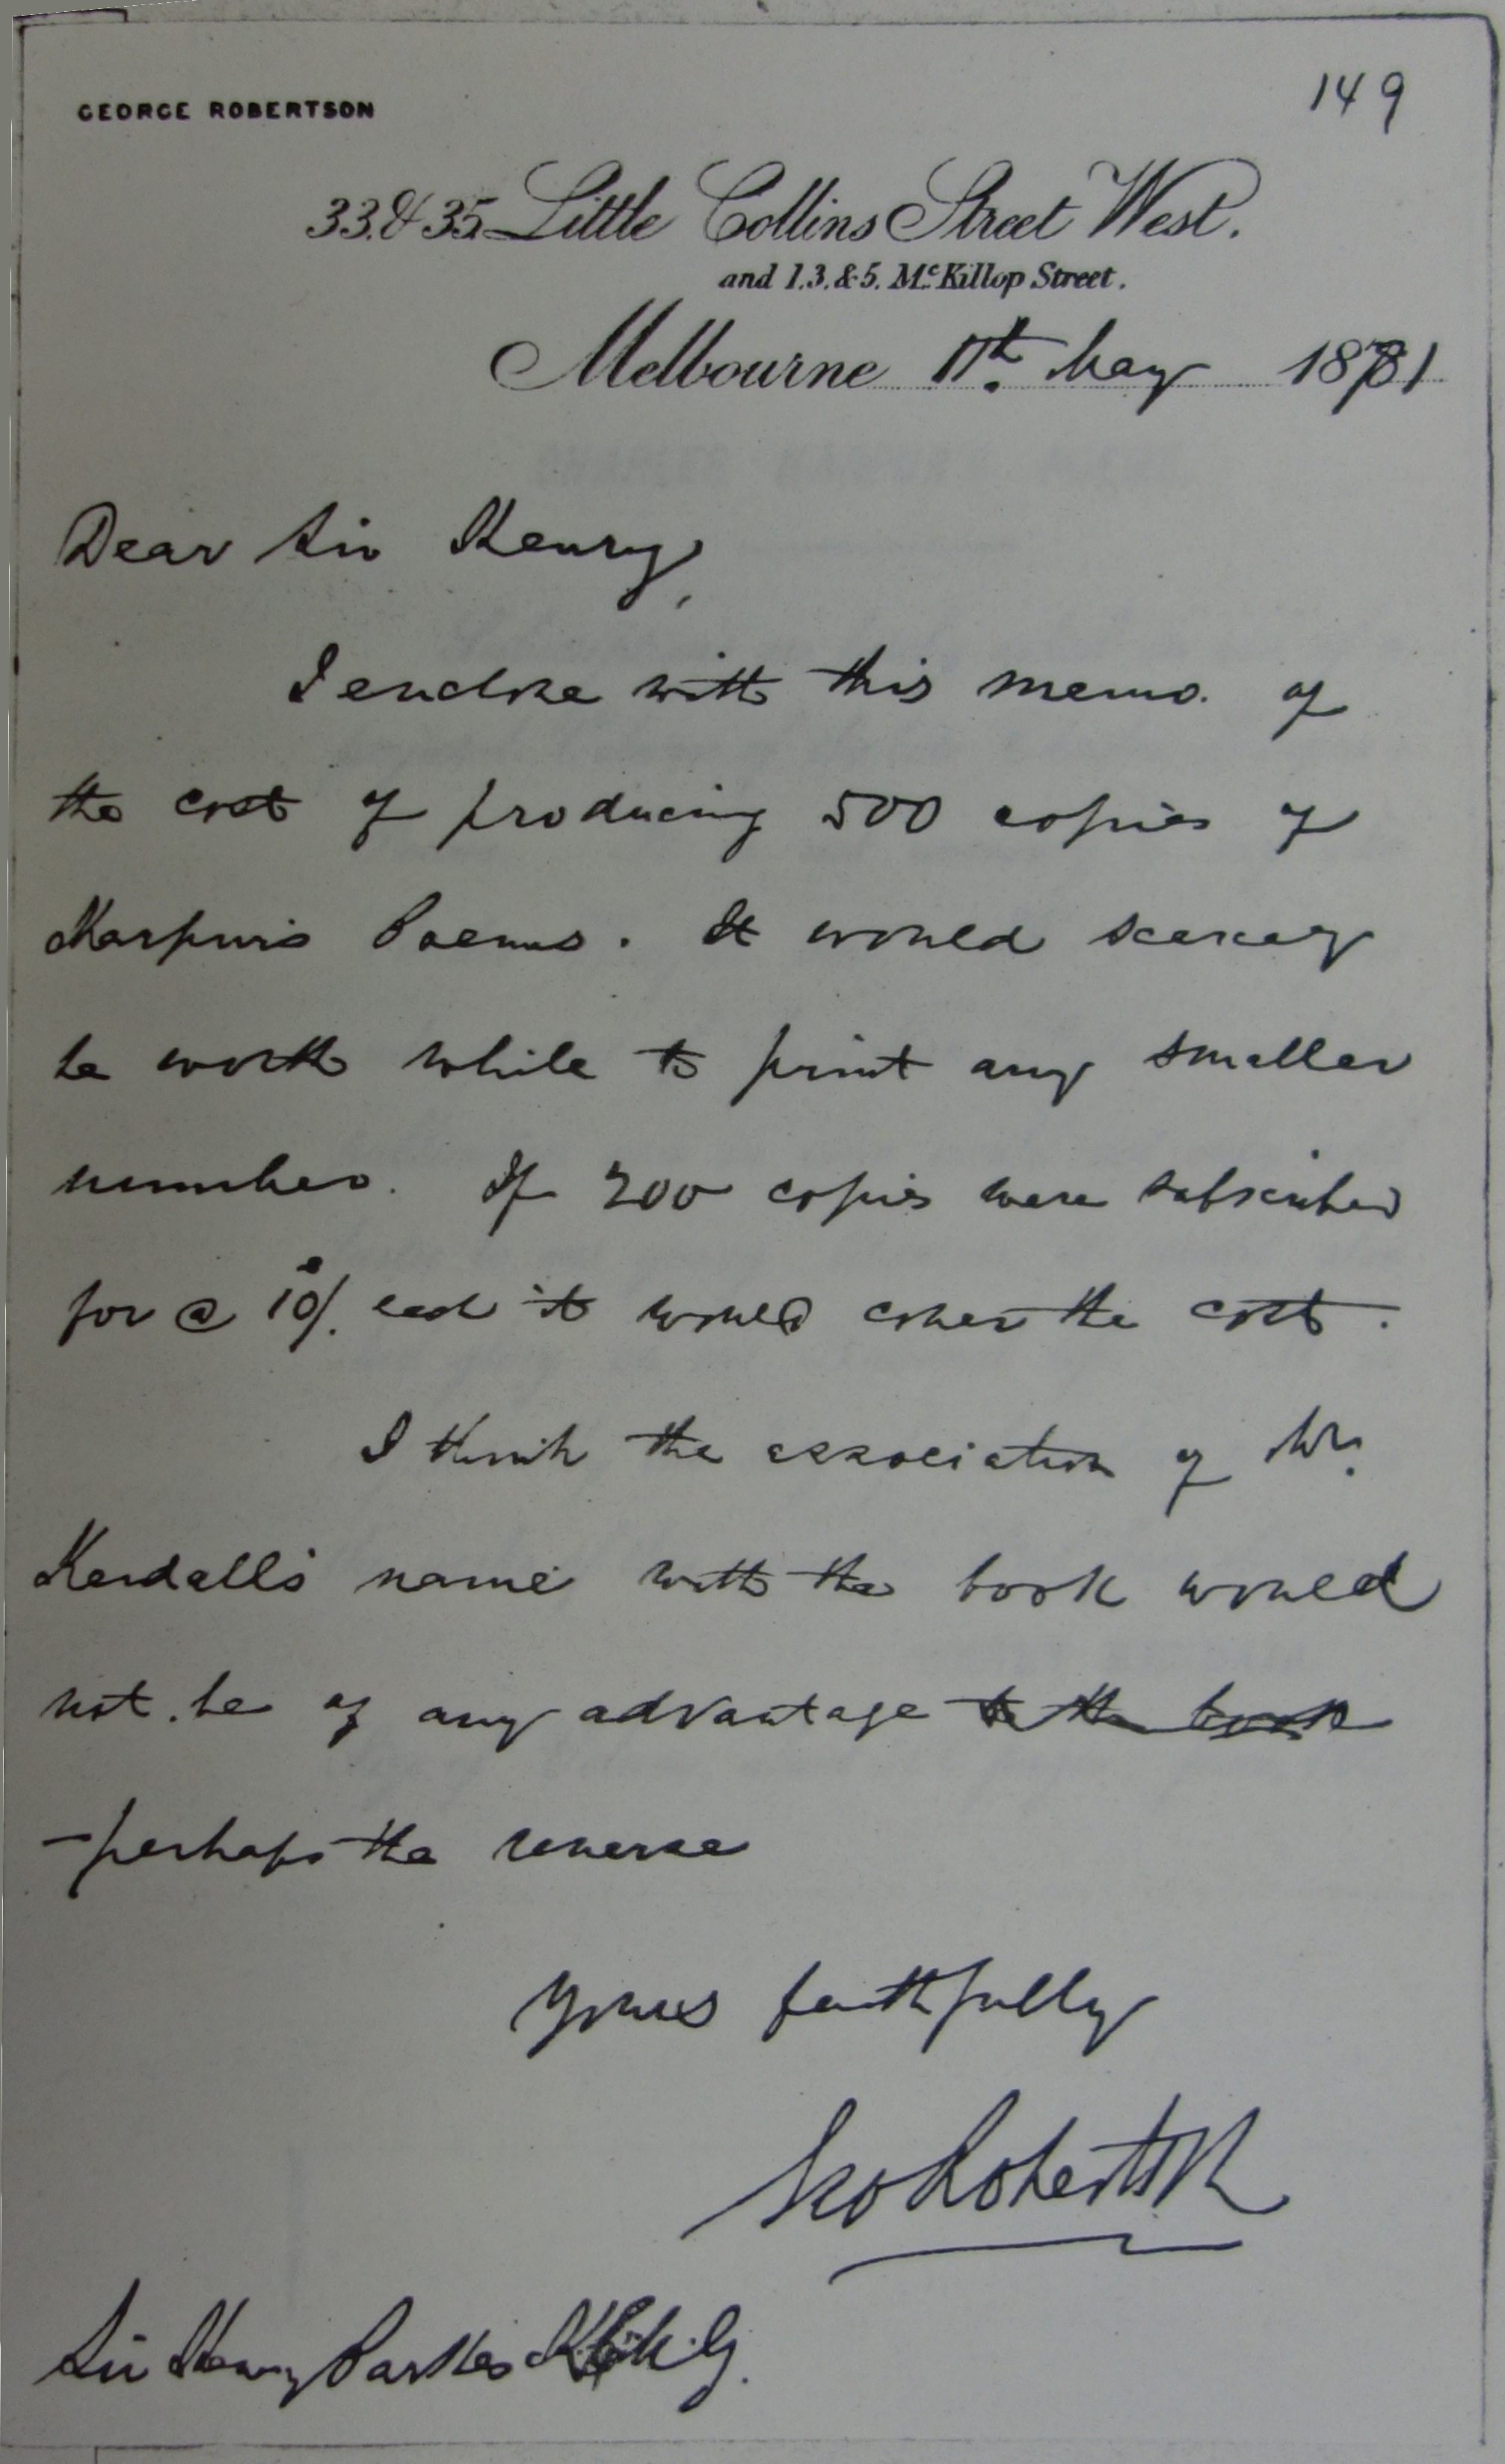 GEORGE ROBERTSON
149
33. & 35. Little Collins Street West.
and 1.3. & 5. McKillop Street.
Melbourne 11th. May 1881
Dear Sir Henry,
I enclose with this memo. of
the cost of producing 500 copies of
Harpur's Poems. It would scarcely
be worth while to print any smaller
number. If 200 copies were subscribed
for @ 10/. each it would cover the cost.
I think the association of Mr.
Kendall's name with the book would
not be of any advantage to the book
- perhaps the reverse
Yours faithfully
Geo Robertson
Sir Henry Parkes K.C.M.G.